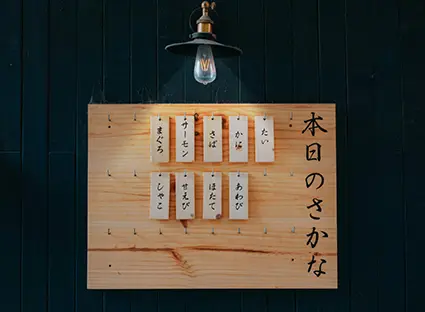 本日のさかな
たい
かに
さば
サーモン
まぐろ
あわび
ほたて
せえび
しゃこ